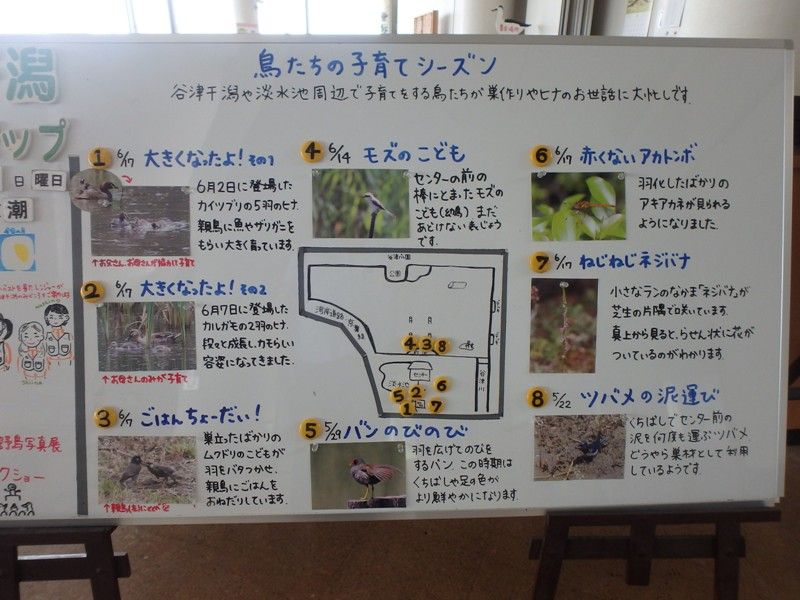 鳥たちの子育てシーズン
谷津干潟や淡水池周辺で子育てをする鳥たちが巣作りやヒナのお世話に大忙しです。
潟
ップ
日 曜日
潮
野鳥写真展
クショー
1 6/17 大きくなったよ! その1
6月2日に登場した
カイツブリの5羽のヒナ。
親鳥に魚やザリガニを
もらい大きく育っています。
↑お父さん、お母さんが協力して子育て
2 6/17 大きくなったよ! その2
6月7日に登場した
カルガモの2羽のヒナ。
段々と成長し、カモらしい
容姿になってきました。
↑お母さんのみが子育て
3 6/7 ごはんちょーだい!
巣立ったばかりの
ムクドリのこどもが
羽をバタつかせ、
親鳥にごはんを
おねだりしています。
4 6/14 モズのこども
センターの前の
棒にとまったモズの
こども(幼鳥) まだ
あどけない表じょう
です。
谷津公園
公園
4 3 8
センター
淡水池
谷津川
5 2 6
1 7
5 5/29 バンのびのび
羽を広げてのびを
するバン。この時期は
くちばしや足の色が
より鮮やかになります。
6 6/17 赤くないアカトンボ
羽化したばかりの
アキアカネが見られる
ようになりました。
7 6/17 ねじねじネジバナ
小さなランのなかま「ネジバナ」が
芝生の片隅で咲いています。
真上から見ると、らせん状に花が
ついているのがわかります。
8 5/22 ツバメの泥運び
くちばしでセンター前の
泥を何度も運ぶツバメ
どうやら巣材として利用
しているようです。